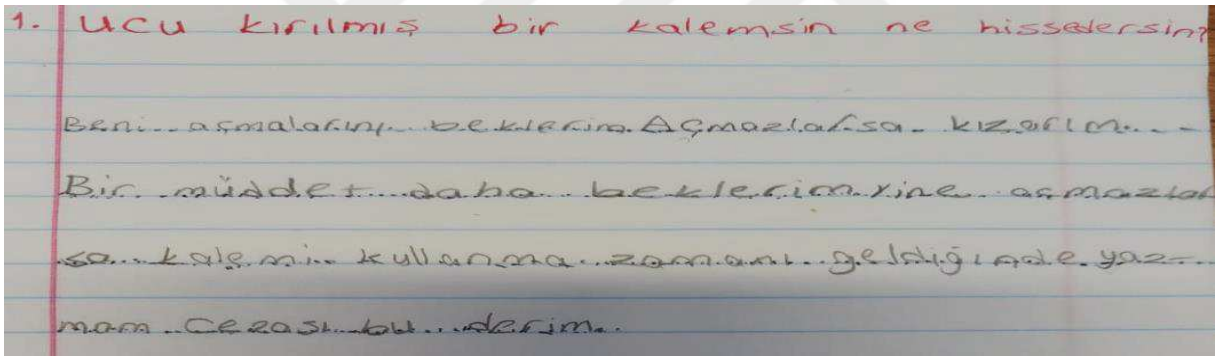 1. Ucu kırılmış bir kalemsin ne hissedersin?
Beni açmalarını beklerim. Açmazlarsa kızarım.
Bir müddet daha beklerim yine açmazlar
sa kalemi kullanma zamanı geldiğinde yaz-
mam cezası bu derim.